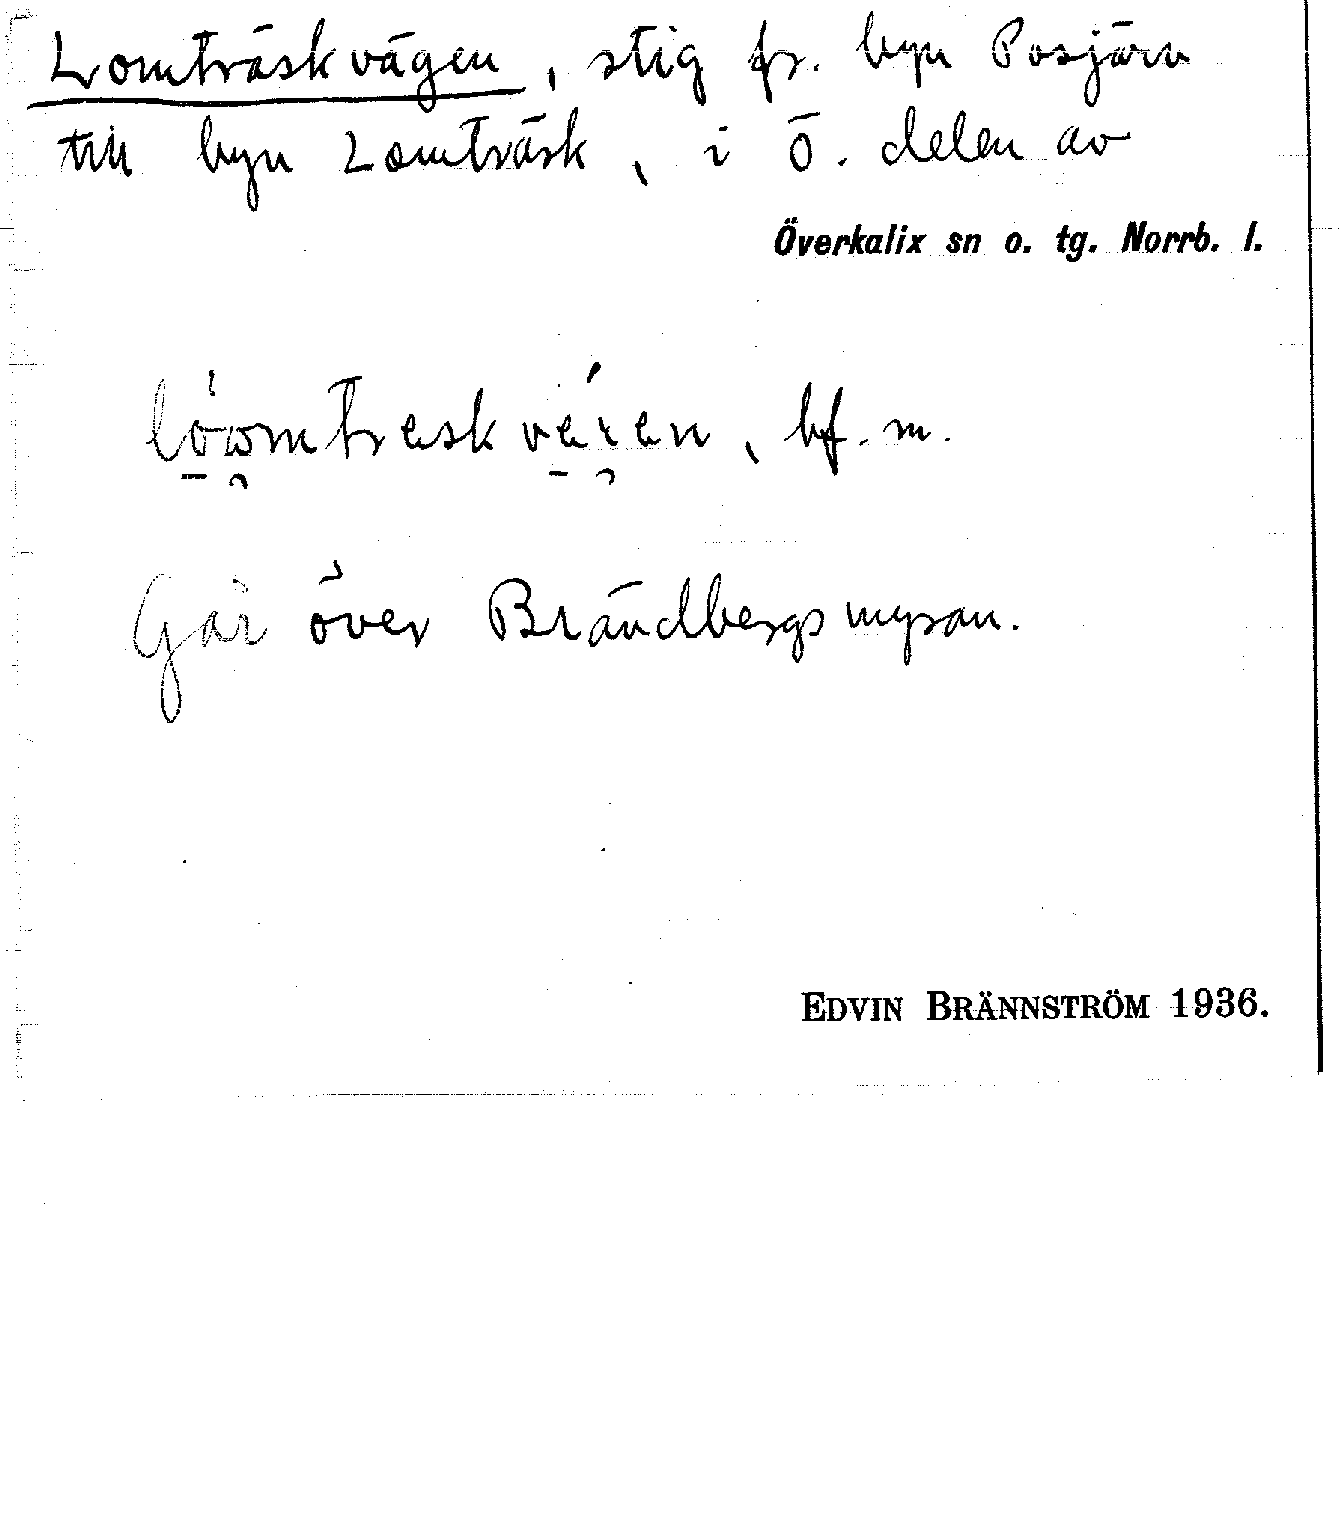 Lomträskvägen, stig fr. byn Posjärv
till byn Lomträsk, i ö. delen av
Överkalix sn o. tg. Norrb. l.
bf. m.
Går över Brändbergsmyran.
EDVIN BRÄNNSTRÖM 1936.